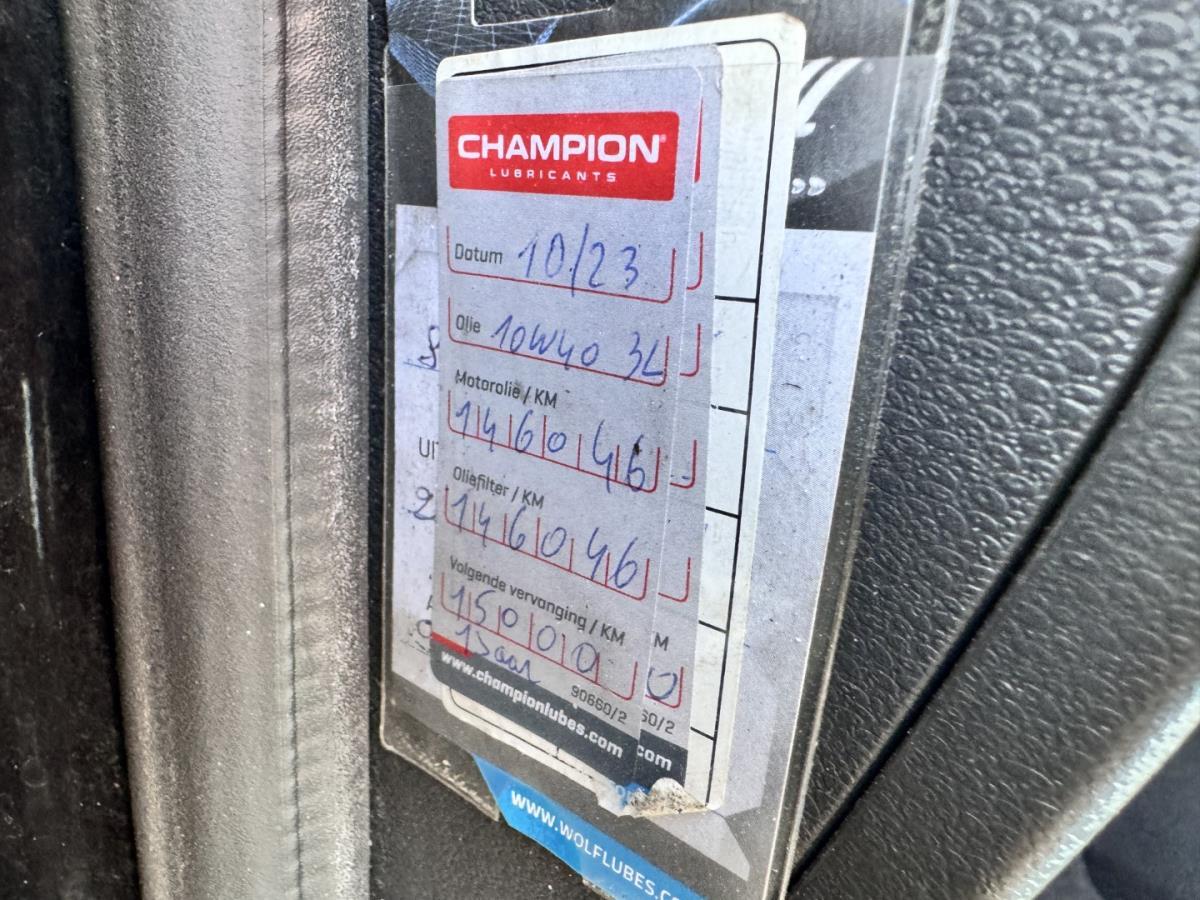 CHAMPION®
LUBRICANTS
Datum 10/23
Olie 10W40 3L
Motorolie / KM
146046
Oliefilter / KM
146046
Volgende vervanging / KM
M
15000
0
1 Jaar
90660/2
60/2
www.championlubes.com
com
UI
WWW.WOLFLUBES.C